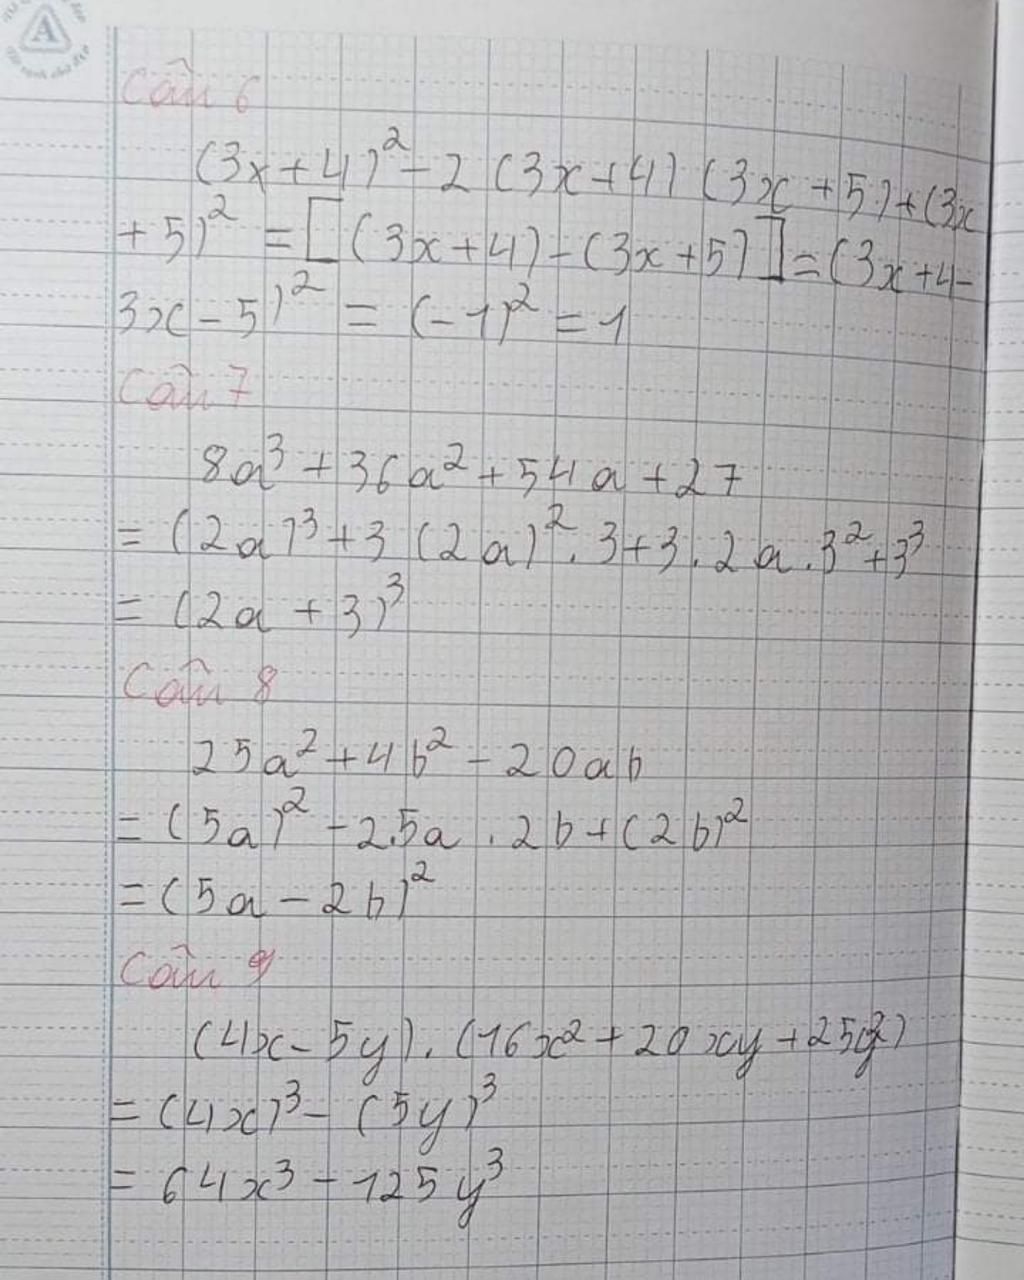 Câu 6
(3x+4)² - 2 (3x+4) (3x +5)+(3x
+5)² = [(3x+4)-(3x+5)]=(3x+4-
3x-5)² = (-1)² = 1
Câu 7
8a³ + 36a² + 54a + 27
= (2a)³ + 3 (2a)² . 3 + 3 . 2a . 3² + 3³
= (2a + 3)³
Câu 8
25a² + 4b² - 20ab
= (5a)² - 2.5a . 2b + (2b)²
= (5a - 2b)²
Câu 9
(4x - 5y) . (16x² + 20xy + 25y²)
= (4x)³ - (5y)³
= 64x³ - 125y³